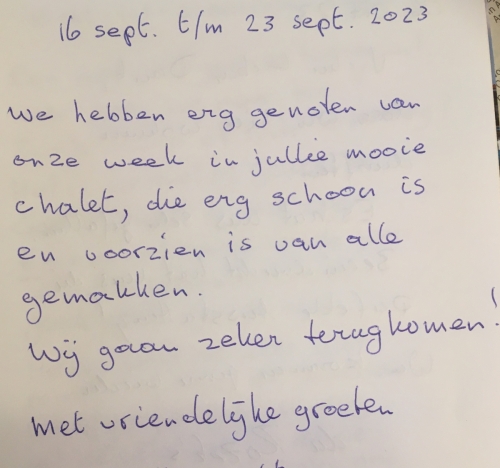 16 sept. t/m 23 sept. 2023
We hebben erg genoten van
onze week in jullie mooie
chalet, die erg schoon is
en voorzien is van alle
gemakken.
Wij gaan zeker terugkomen!
Met vriendelijke groeten